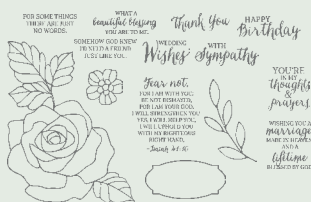 FOR SOME THINGS
THERE ARE JUST
NO WORDS.
WHAT A
beautiful blessing
YOU ARE TO ME.
Thank You
HAPPY
Birthday
SOMEHOW GOD KNEW
I'D NEED A FRIEND
JUST LIKE YOU.
WEDDING
Wishes
WITH
Sympathy
YOU'RE
IN MY
thoughts
&
prayers.
Fear not,
FOR I AM WITH YOU;
BE NOT DISMAYED,
FOR I AM YOUR GOD.
I WILL STRENGTHEN YOU
YES, I WILL HELP YOU,
I WILL UPHOLD YOU
WITH MY RIGHTEOUS
RIGHT HAND.
-Isaiah 41:10
WISHING YOU A
marriage
MADE IN HEAVEN
AND A
lifetime
BLESSED BY GOD